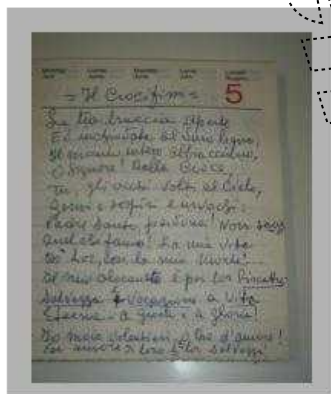 = Il Crocifisso =
5
Le tue braccia aperte
Ed inchiodate al duro legno,
Il mondo intero abbracciano,
O Signore! Dalla Croce,
Tu, gli occhi volti al Cielo,
Gemi e sospiri e
Padre Santo, perdona! Non sanno
quel che fanno! La mia Vita
Loro, con la mia Morte!...
Il mio olocausto è per lor Riscatto,
Salvezza + Vocazione a Vita
Eterna - a gioia e a gloria!
Io muoio volentieri, o Dio d'amore!
Per amore di loro